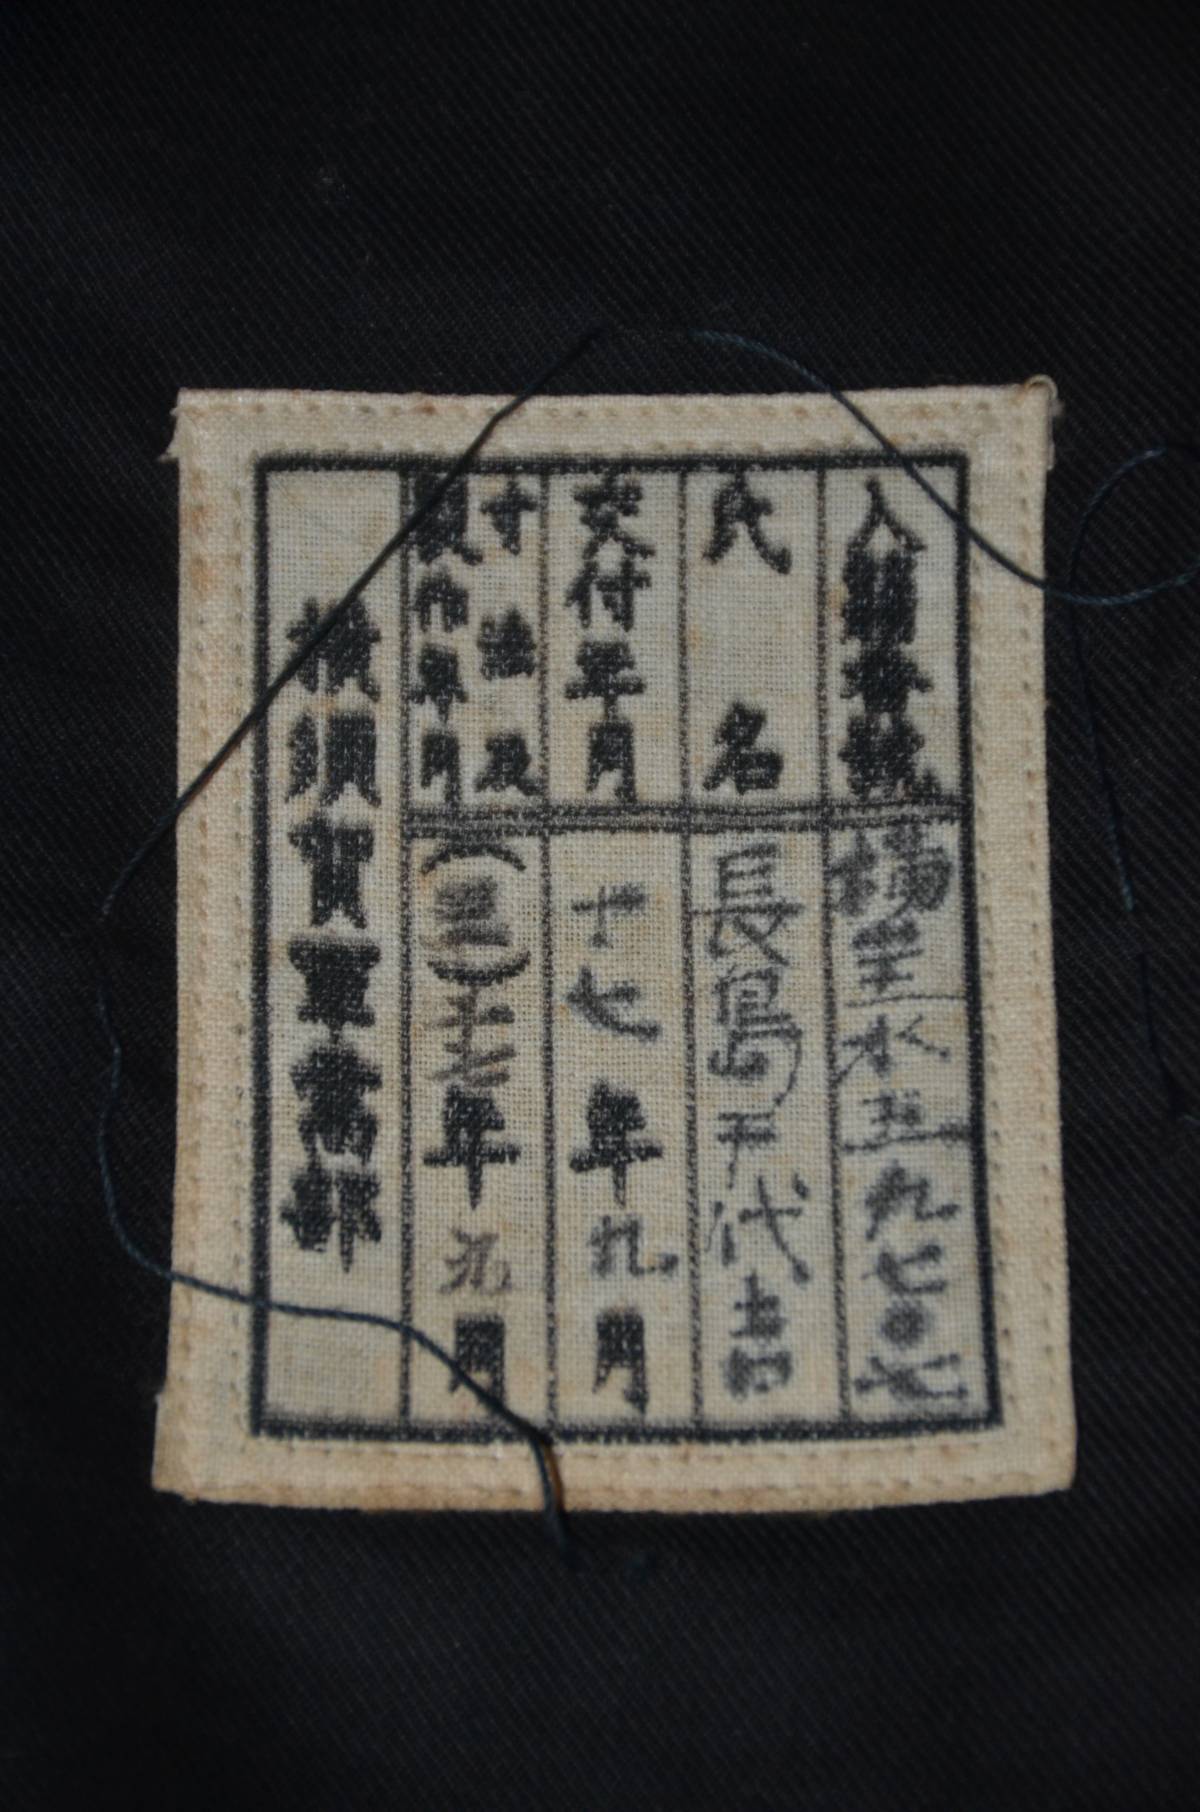 入籍番號 横主水五九七〇七
氏名 長島千代吉
交付年月 十七年九月
寸法及製作年月 (三)十七年九月
横須賀軍需部